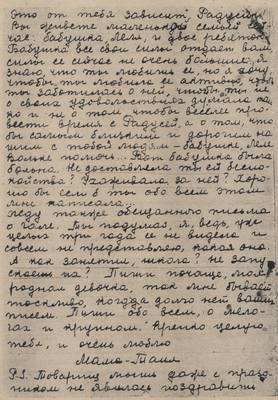 это от тебя зависит, Радусик.
Вы живете маленькой семьей сей-
час. Бабушка, Леля, и двое ребяток.
Бабушка все свои силы отдает вам,
силы ее сейчас не очень большие. Я
знаю, что ты любишь ее, но я хочу,
чтобы ты любила ее активно, чтобы
ты заботилась о ней, чтобы ты не
о своих удовольствиях думала
и не о том, чтобы веселее про-
вести время с Радусей, а о том, что
бы самым близким и дорогим на-
шим с тобой людям - бабушке, Леле
больше помочь... Вот бабушка была
больна. Не доставляла ты ей беспо-
койства? Ухаживала за ней? Хоро-
шо бы если б ты обо всем этом
мне написала...
Жду также обещанного письма
о Гале. Ты подумай, я ведь, уже
целых три года ее не видела и
совсем не представляю, какая она.
А как занятия, школа? не запу-
скаешь? Пиши почаще, моя
родная девочка, так мне бывает
тоскливо, когда долго нет ваших
писем. Пиши обо всем, о мело-
чах и крупном. Крепко целую
тебя, и очень люблю
Мама-Таля
P.S. Товарищ мышь даже с празд-
ником не явилась поздравить